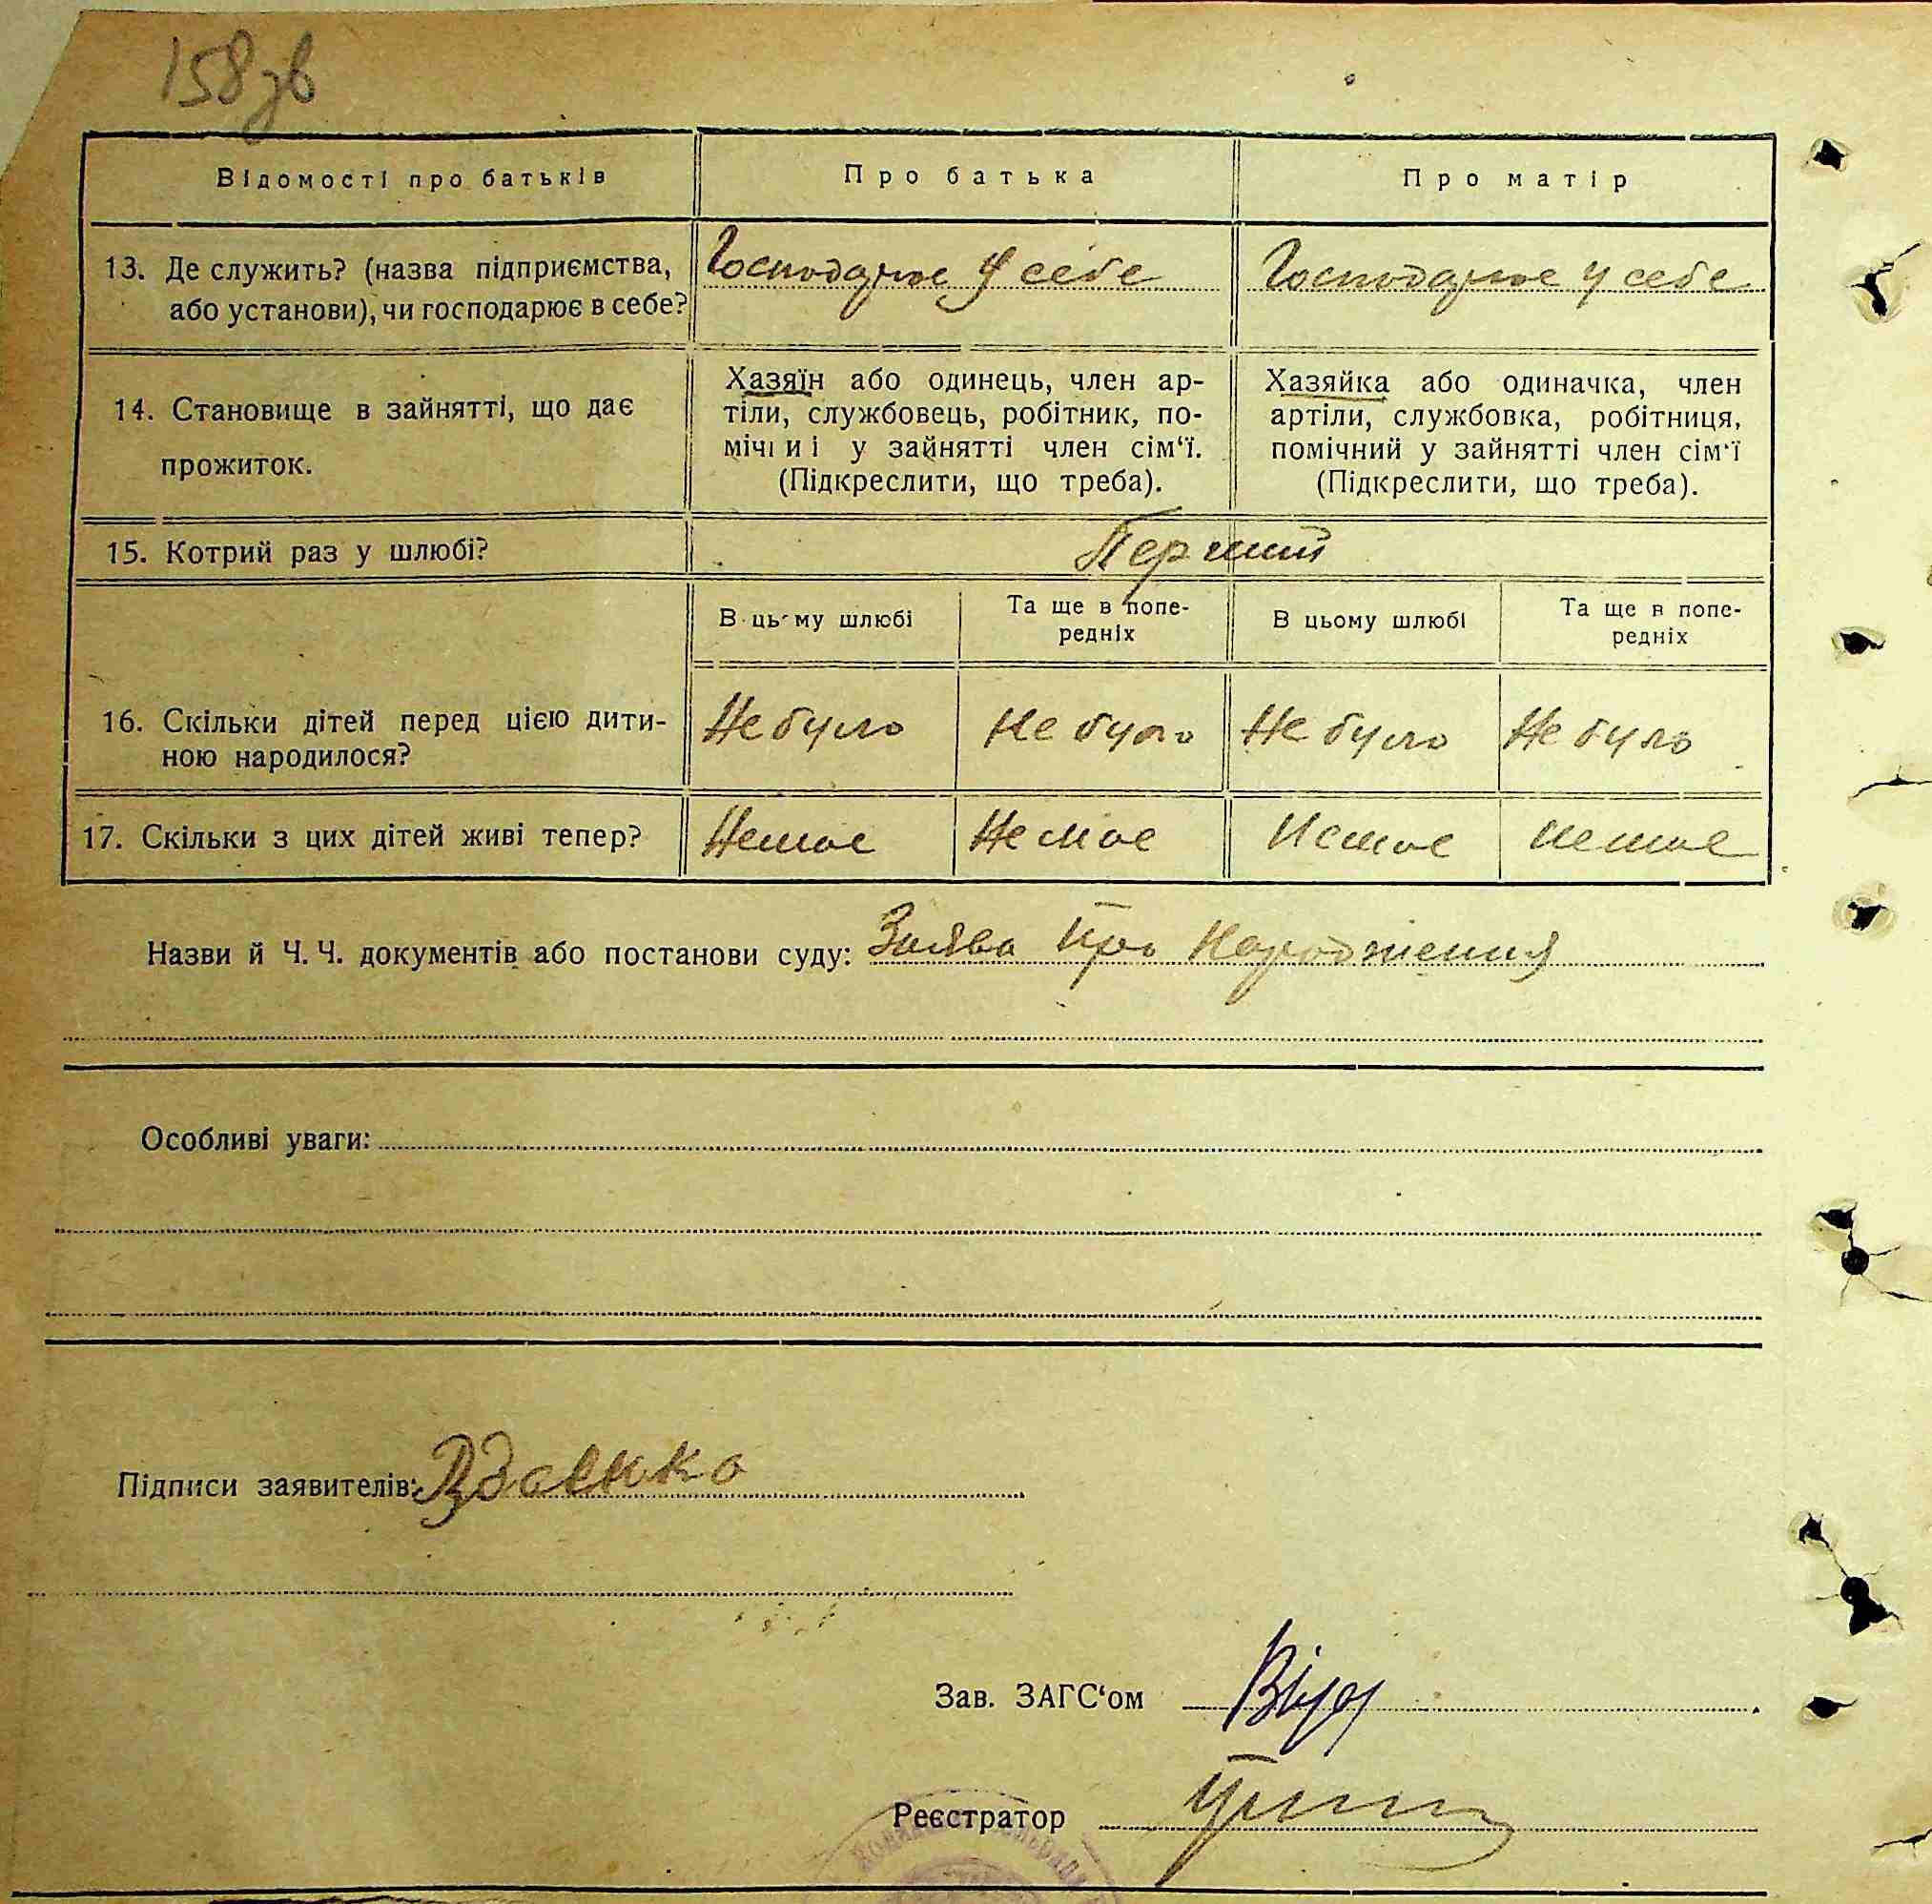 158 зв
Відомості про батьків
Про батька
Про матір
13. Де служить? (назва підприємства,
або установи), чи господарює в себе?
Господарює У себе
Господарює у себе
14. Становище в зайнятті, що дає
прожиток.
Хазяїн або одинець, член ар-
тіли, службовець, робітник, по-
мічн и і у зайнятті член сім‘ї.
(Підкреслити, що треба).
Хазяйка або одиначка, член
артіли, службовка, робітниця,
помічний у зайнятті член сім‘ї
(Підкреслити, що треба).
15. Котрий раз у шлюбі?
Перший
В цьому шлюбі
Та ще в попе-
редніх
В цьому шлюбі
Та ще в попе-
редніх
16. Скільки дітей перед цією дити-
ною народилося?
Не було
Не було
Не було
Не було
17. Скільки з цих дітей живі тепер?
Немає
Немає
Немає
немає
Назви й Ч. Ч. документів або постанови суду: Заява про Народження
Особливі уваги:
Підписи заявителів:
Зав. ЗАГС‘ом
Реєстратор